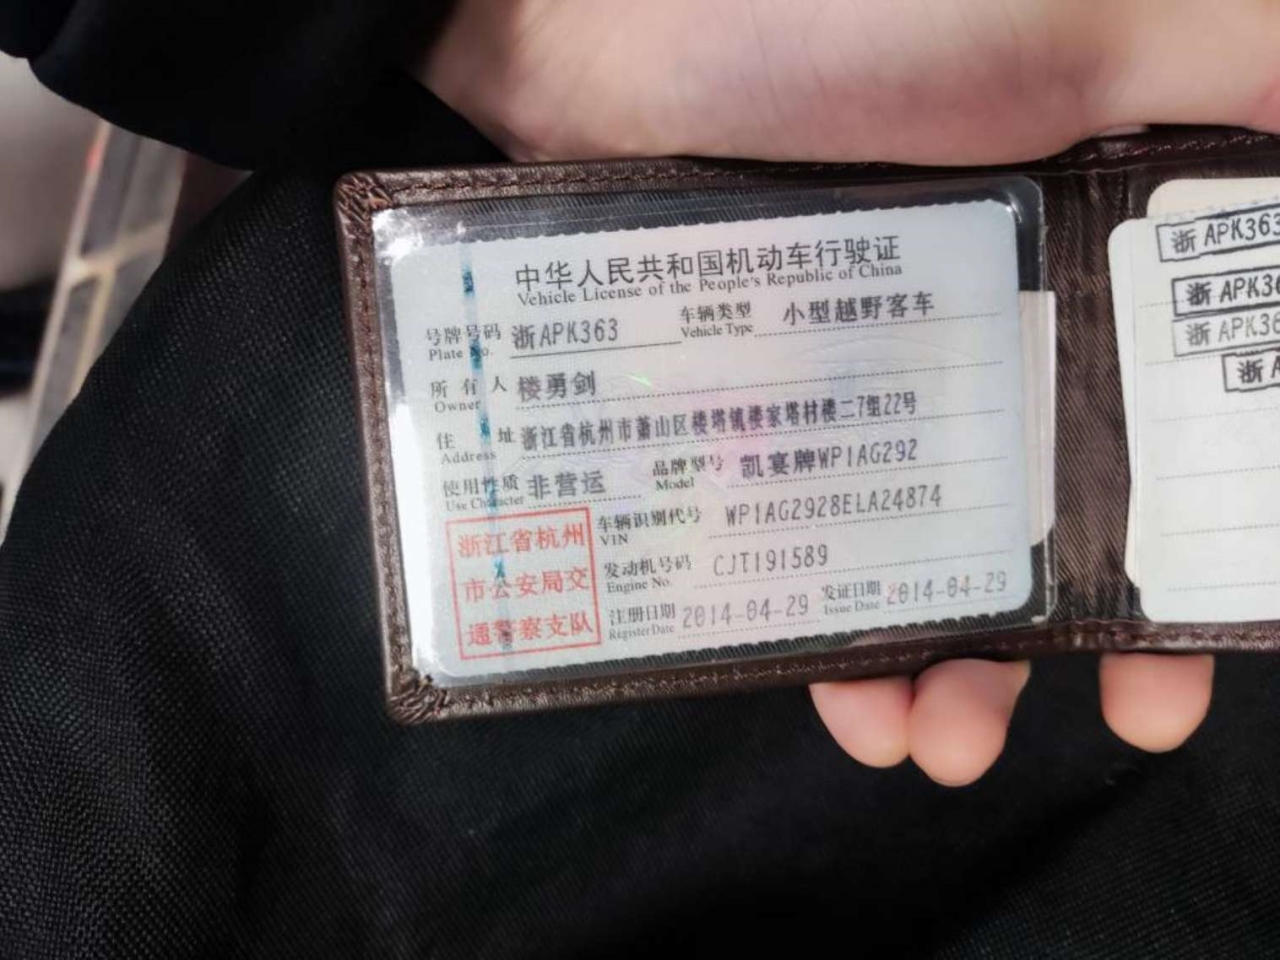 中华人民共和国机动车行驶证
Vehicle License of the People's Republic of China
号牌号码 浙APK363 车辆类型 小型越野客车
Plate No. Vehicle Type
所有人 楼勇剑
Owner
住址 浙江省杭州市萧山区楼塔镇楼家塔村楼二7组22号
Address
使用性质 非营运 品牌型号 凯宴牌WP1AG292
Use Character Model
浙江省杭州
市公安局交
通警察支队
车辆识别代号 WP1AG2928ELA24874
VIN
发动机号码 CJT191589
Engine No.
注册日期 2014-04-29 发证日期 2014-04-29
Register Date Issue Date
浙APK363
浙APK36
浙APK36
浙A